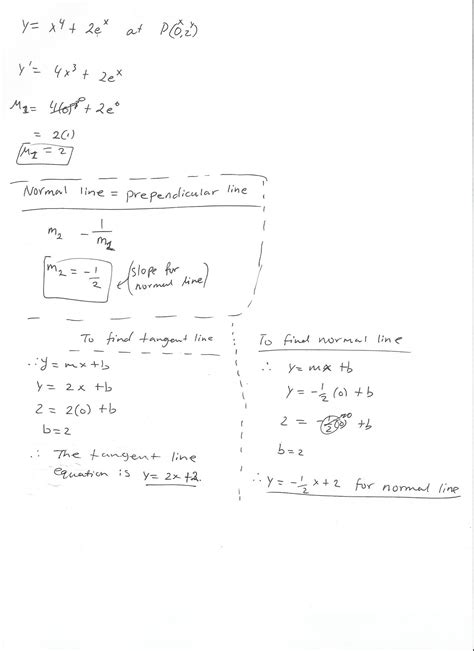 y = x⁴ + 2eˣ at P(0,2)
x y
y' = 4x³ + 2eˣ
M1 = 4(0)³ 0 + 2e⁰
= 2(1)
M1 = 2
Normal line = prependicular line
m2 - 1/m1
m2 = -1/2 (slope for normal line)
To find tangent line
∴ y = mx + b
y = 2x + b
2 = 2(0) + b
b = 2
∴ The tangent line
equation is y = 2x + 2.
To find normal line
∴ y = mx + b
y = -1/2 (0) + b
2 = -1/2(0) →0 + b
b = 2
∴ y = -1/2 x + 2 for normal line